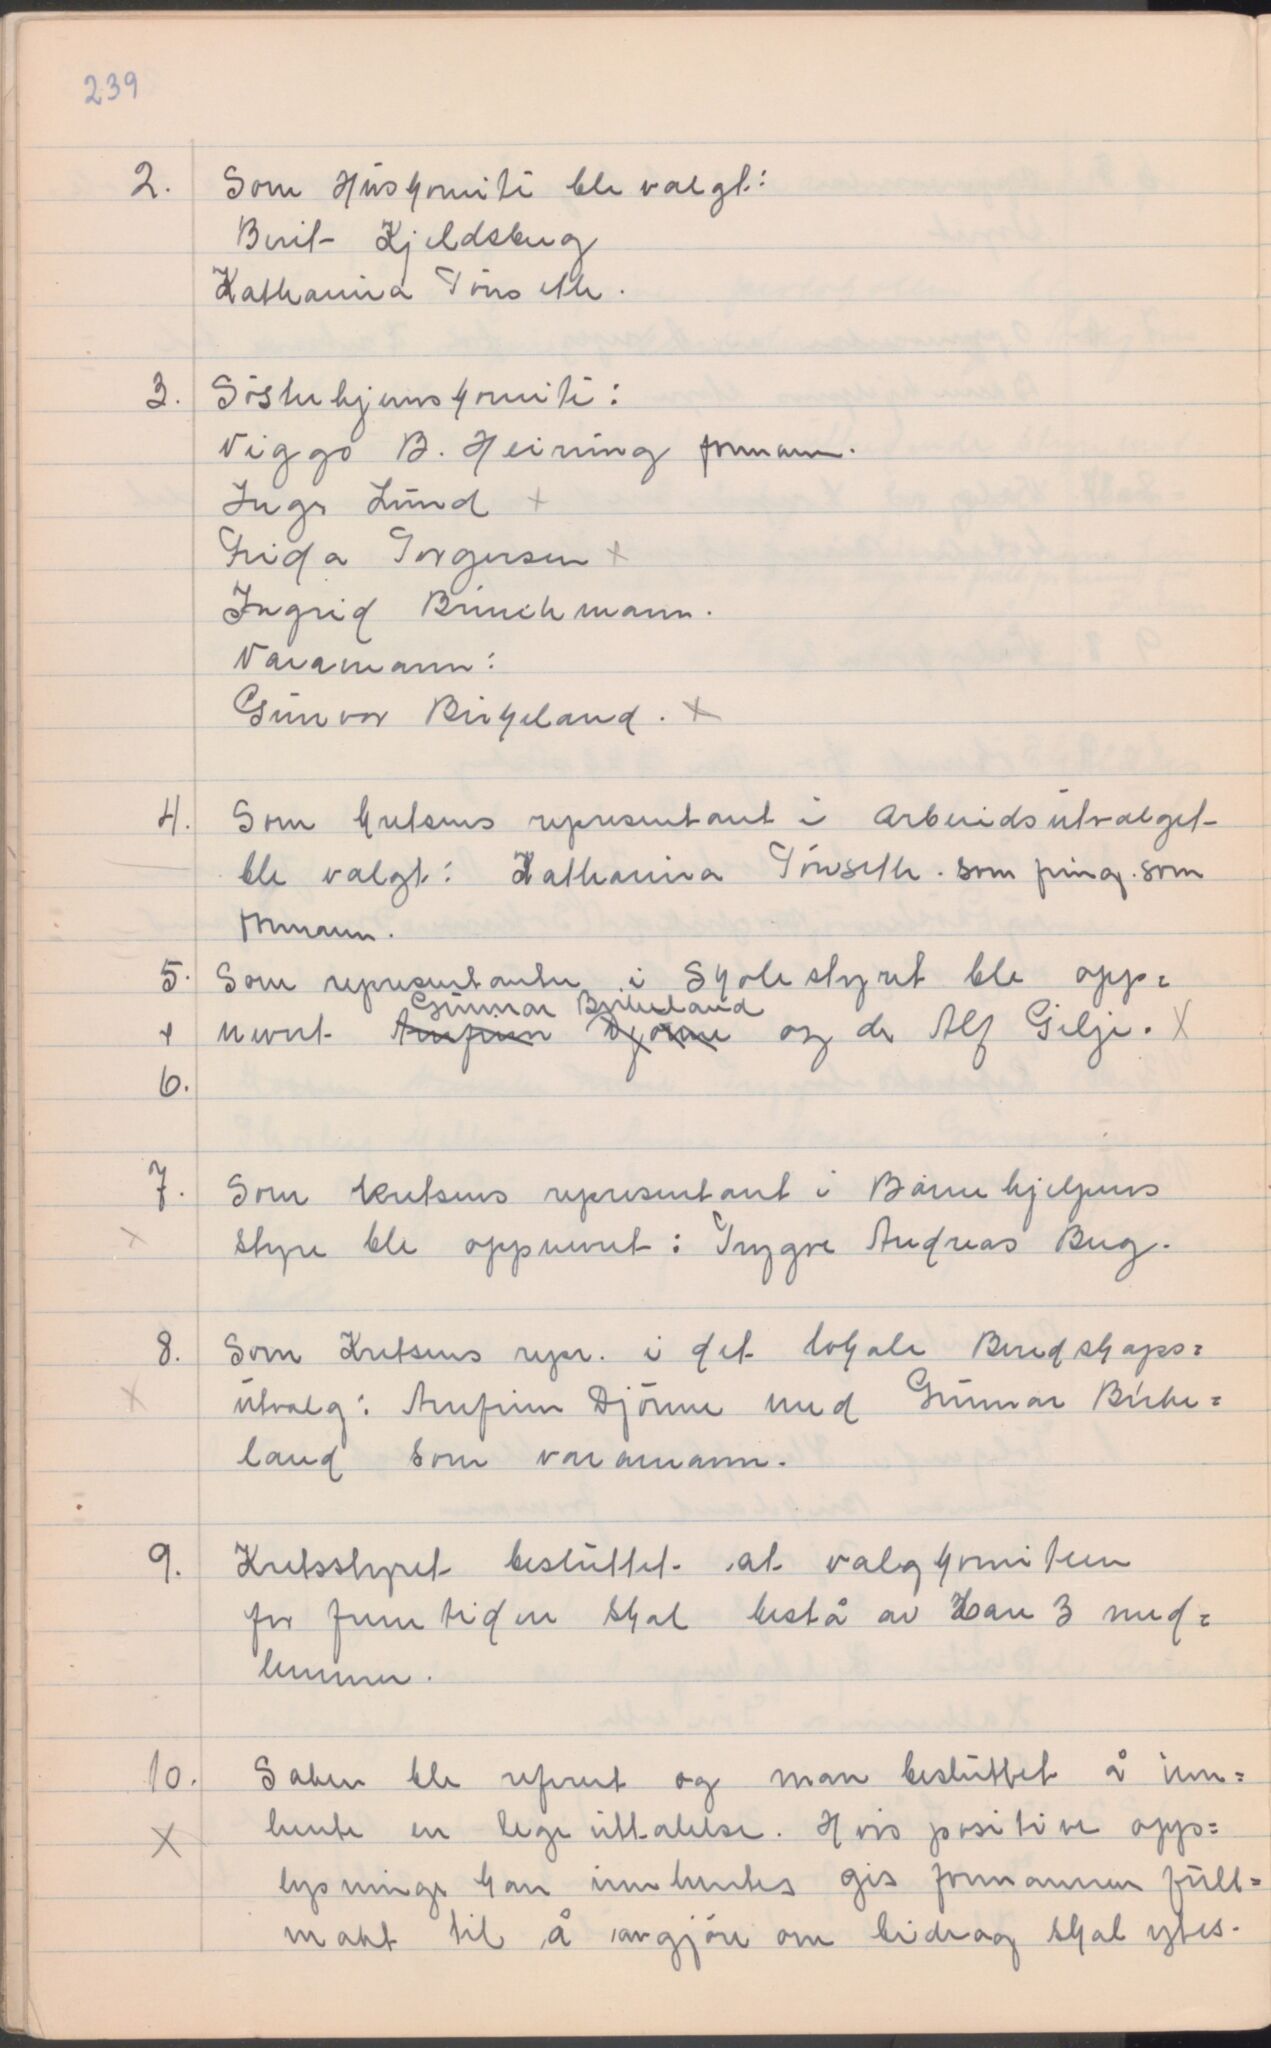 239
2. Som Huskomite ble valgt:
Berit Kjeldsberg
Katharina Tønseth.
3. Søsterhjemskomite:
Viggo B. Heiring formann.
Inger Lund x
Frida Torgersen x
Ingrid Brinchmann.
Varamann:
Gunvor Birkeland. x
4. Som kretsens representant i Arbeidsutvalget
ble valgt: Katharina Tønseth. som fung. som
formann.
5. Som representanter i Skolestyret ble opp=
Gunnar Birkeland
+ nevnt Arnfinn Djønne og dr Alf Gilje. x
6.
7. Som kretsens representant i Barnehjelpens
x styre ble oppnevnt: Trygve Andreas Berg.
8. Som Kretsens repr. i det lokale Beredskaps=
x utvalg: Arnfinn Djønne med Gunnar Birke=
land som varamann.
9. Kretsstyret besluttet at valgkomiteen
for fremtiden skal bestå av bare 3 med=
lemmer.
10. Saken ble referert og man besluttet å inn=
x hente en lege uttalelse. Hvis positive opp=
lysninger kan innhentes gis formannen full=
makt til å avgjøre om bidrag skal ytes.